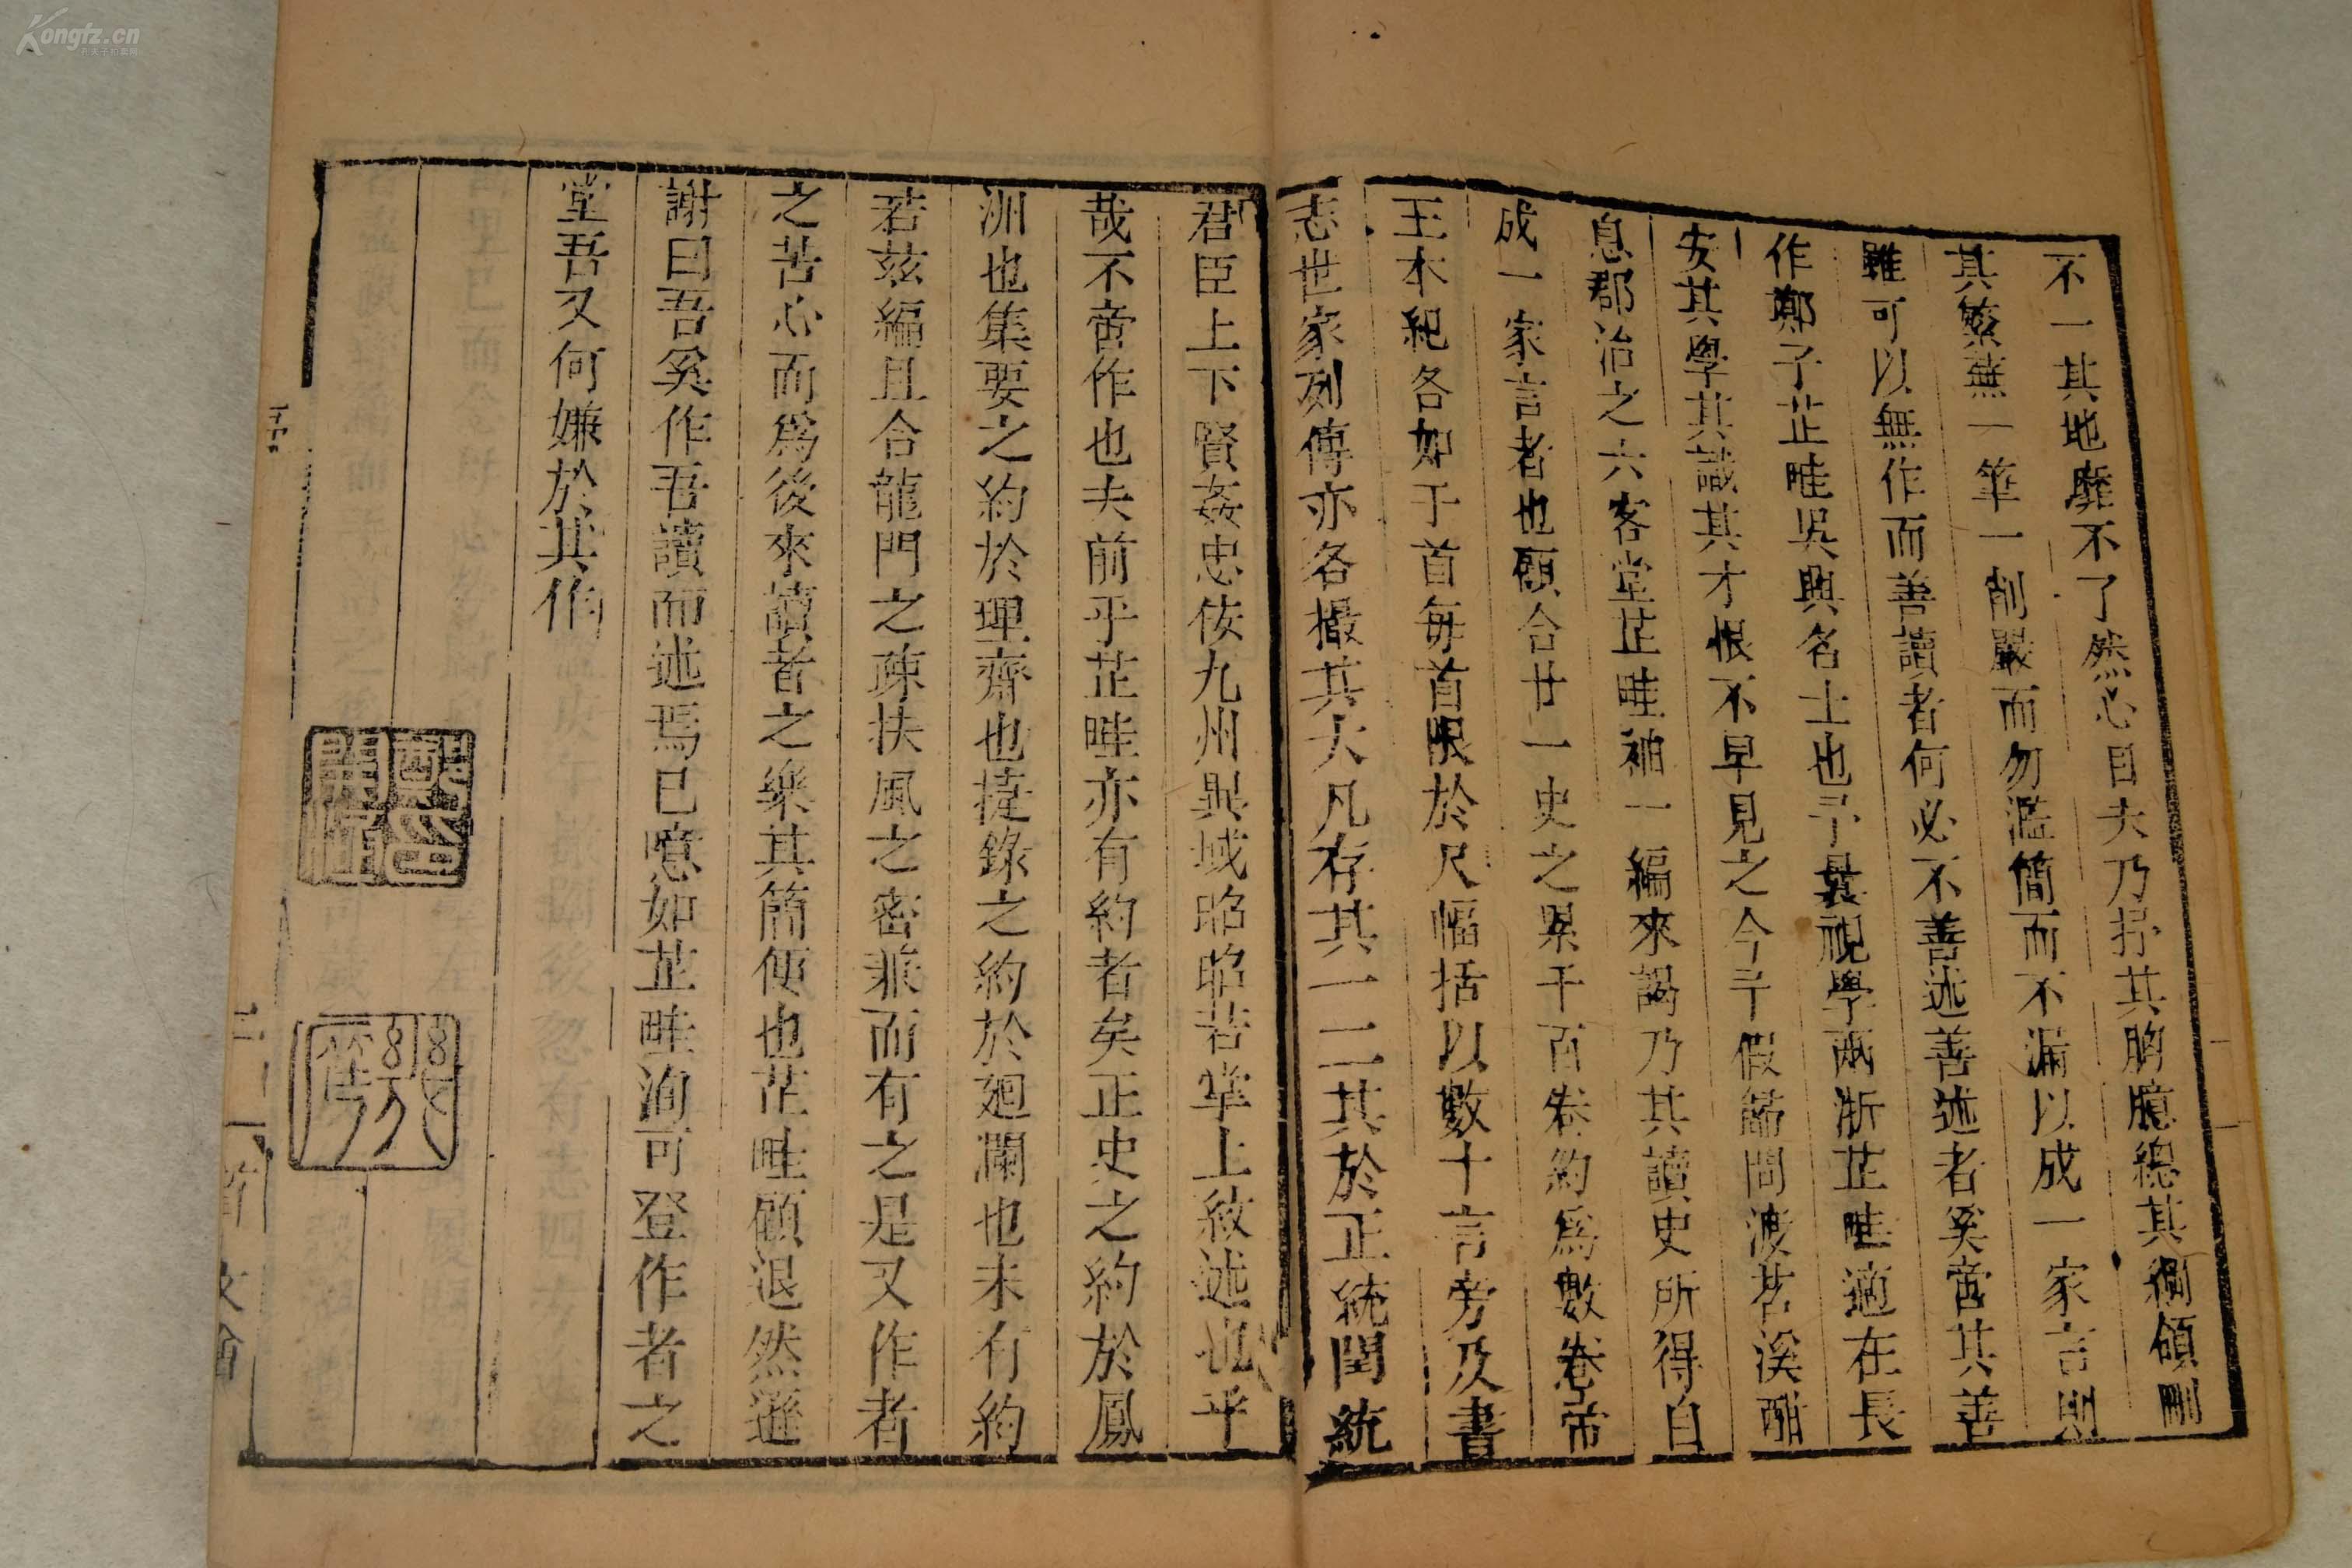 不一其地靡不了然心目夫乃抒其胸臆總其綱領刪
其繁蕪一筆一削嚴而勿濫簡而不漏以成一家言則
雖可以無作而善讀者何必不善述善述者奚啻其善
作鄭子芷畦吳興名士也予曩視學兩浙芷畦適在長
安其學其識其才恨不早見之今年假歸問渡苕溪
息郡治之六客堂芷畦袖一編來謁乃其讀史所得自
成一家言者也願合廿一史之累千百卷約為數卷帝
王本紀各如干首每首限於尺幅括以數十言旁及書
志世家列傳亦各撮其大凡存其一二其於正統閏統
君臣上下賢姦忠佞九州異域昭昭若掌上紋述也乎
哉不啻作也夫前乎芷畦亦有約者矣正史之約於鳳
洲也集要之約於理齋也捷錄之約於廻瀾也未有約
若茲編且合龍門之疎扶風之密兼而有之是又作者
之苦心而為後來讀者之樂其簡便也芷畦顧退然遜
謝曰吾奚作吾讀而述焉已噫如芷畦洵可登作者之
堂吾又何嫌於其作
Kongfz.cn